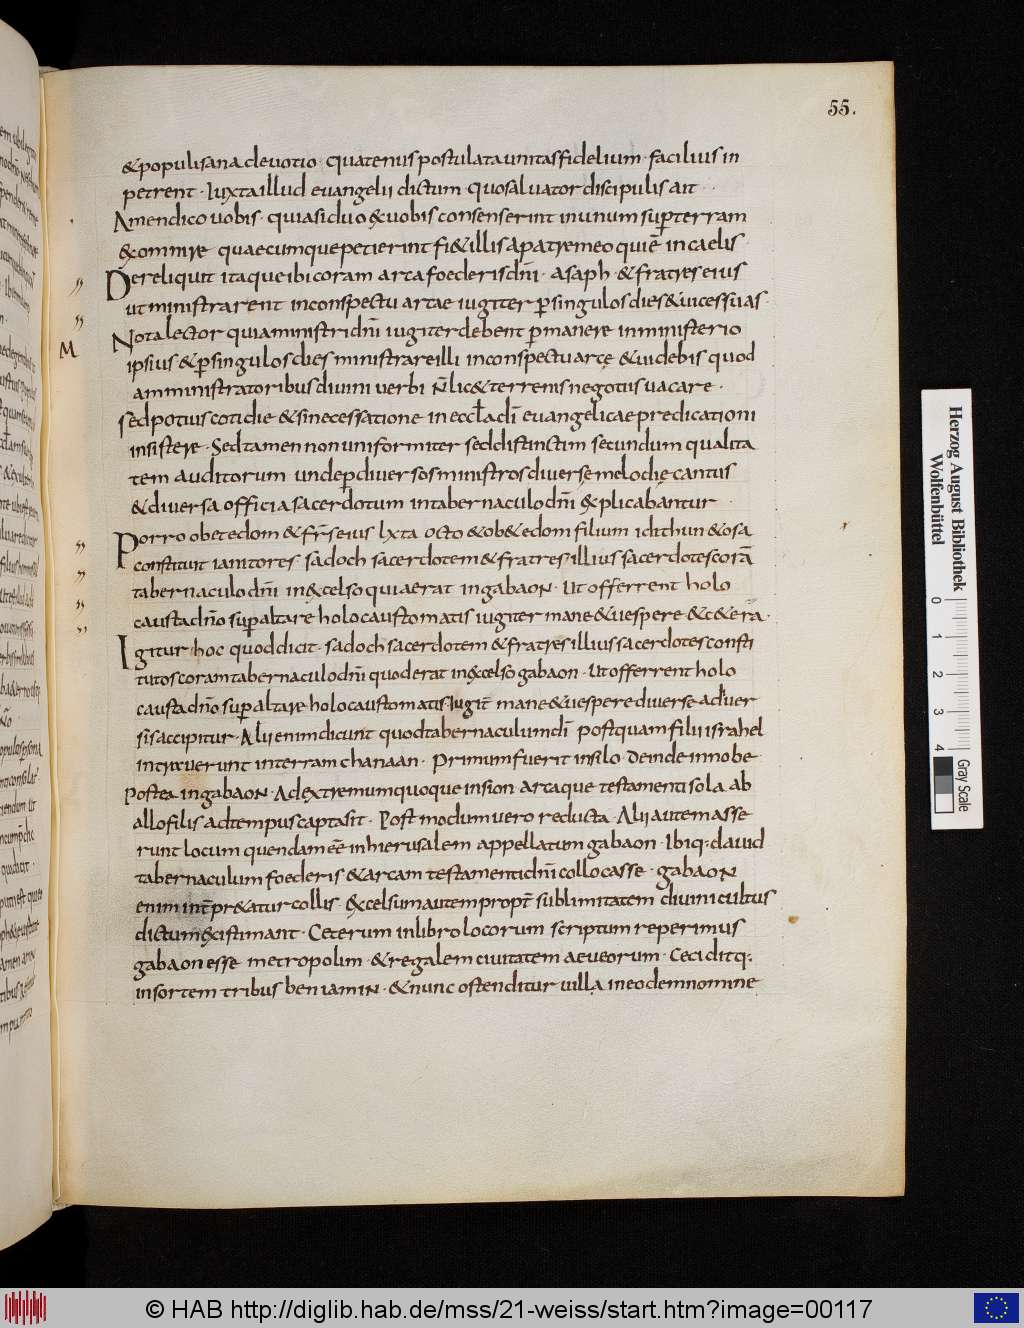 55.
&populi sana devotio · quatenus postulata unitas fidelium · facilius in
petrent · Iuxta illud evangelii dictum · quo salvator discipulis ait ·
Amen dico vobis · quia si duo ex vobis consenserint in unum sup̄ terram
& omni re quaecumque petierint fi& illis a patre meo qui ē in caelis ·
Dereliquit itaque ibi coram arca foederis dn̄i · asaph · & fratres eius
ut ministrarent in conspectu arcae iugiter p̄ singulos dies & vices suas ·
Nota lector quia ministri dn̄i iugiter debent p̄manere in ministerio
M
ipsius & p̄ singulos dies ministrare illi in conspectu arcę & videbis quod
amministratoribus divini verbi n̄ lic& terrenis negotiis vacare ·
sed potius cotidie & sine cessatione in eccl̄a dī evangelicae predicationi
insistere · Sed tamen non uniformiter sed distinctim secundum qualita
tem auditorum unde p̄ diversos ministros diversę melodię cantus
& diversa officia sacerdotum in tabernaculo dn̄i explicabantur ·
Porro obetedom & fr̄s eius lxta octo & ob&edom filium idithun & osa
constituit ianitores sadoch sacerdotem & fratres illius sacerdotes corā
tabernaculo dn̄i in excelso qui aerat in gabaon · Ut offerrent holo
causta dn̄o sup̄ altare holocaustomatis iugiter mane & vespere & c&erā ·
Igitur hoc quod dicit · sadoch sacerdotem & fratres illius sacerdotes consti
tutos coram tabernaculo dn̄i quod erat in excelso gabaon · Ut offerrent holo
causta dn̄o sup̄ altare holocaustomatis · iugit̄ mane & vespere diverse adver
sīs accipitur · Alii enim dicunt quod tabernaculum dī postquam filii israhel
introierunt in terram chanaan · Primum fuerit in silo · deinde in nobe
Postea in gabaon · Ad extremum quoque in sion arcaque testamenti sola ab
allofilis ad tempus capta sit · Post modum vero reducta · Alii autem asse
runt locum quendam eē in hierusalem appellatum gabaon · Ibiq: david
tabernaculum foederis & arcam testamenti dn̄i collocasse · gabaon
enim int̄pr&atur collis · excelsum autem propt̄ sublimitatem divini cultus
dictum existimant · Ceterum in libro locorum scriptum reperimus
gabaon esse metropolim · & regalem civitatem aeveorum · Ceciditq:
in sortem tribus beniamin · & nunc ostenditur villa in eodem nomine
Herzog August Bibliothek
Wolfenbüttel
0 1 2 3 4
Gray Scale
© HAB http://diglib.hab.de/mss/21-weiss/start.htm?image=00117